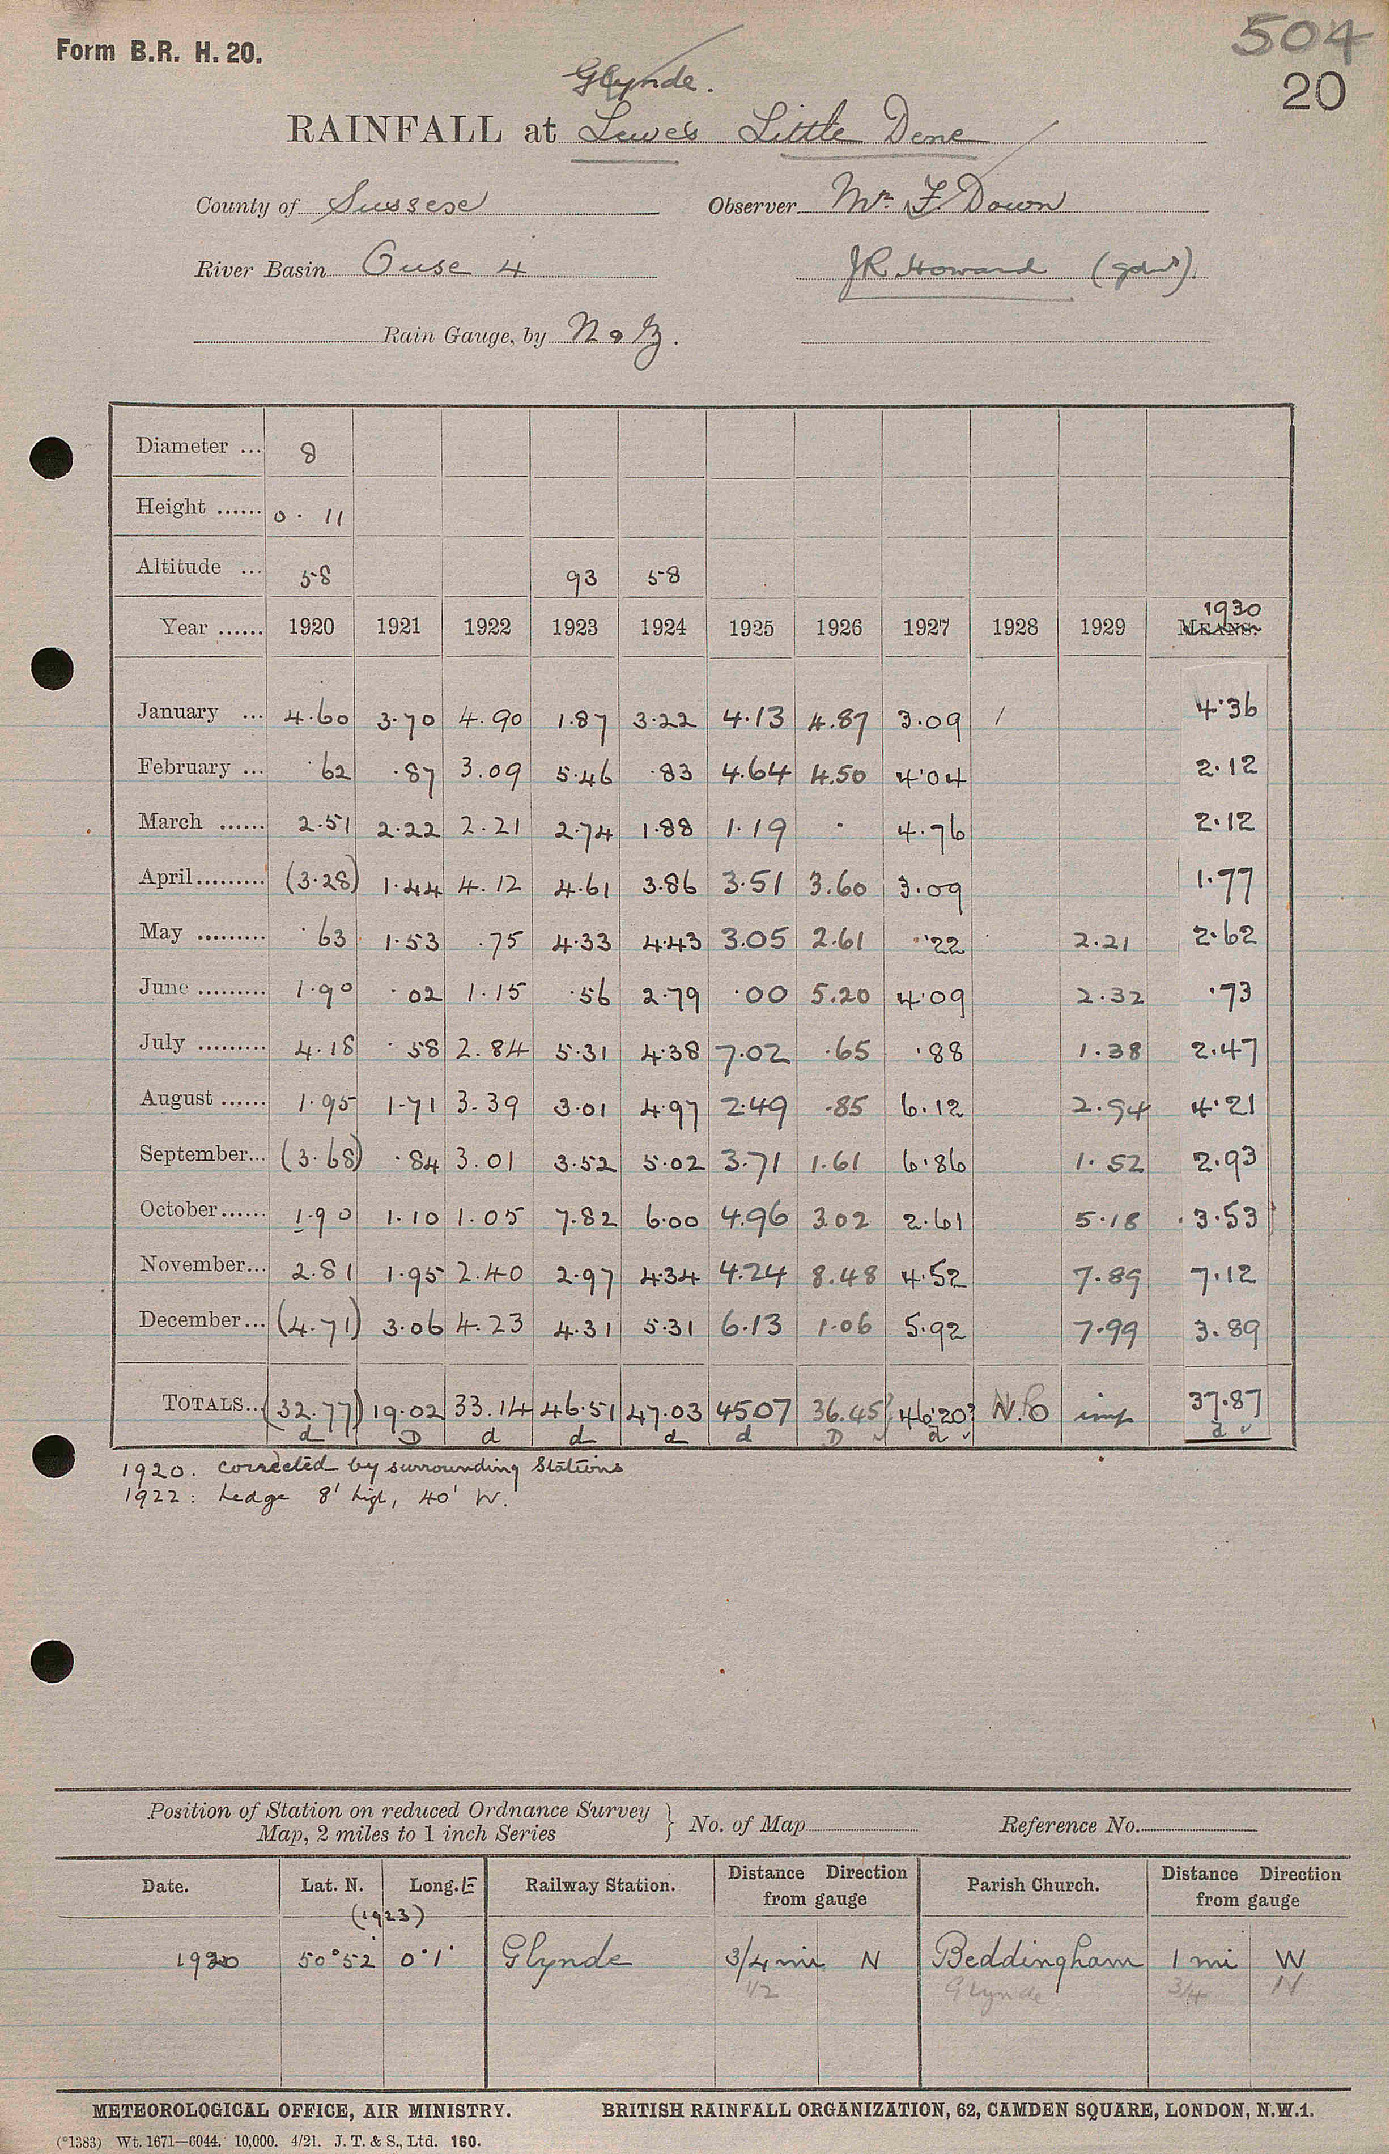 504
Form B.R. H. 20.
20
Glynde.
RAINFALL at Lewes Little Dene
County of Sussex Observer Mr. F. Down
River Basin Ouse 4 J R Howard (gdnr).
Rain Gauge, by N & Z.
Diameter ... 8
Height ...... 0 . 11
Altitude ... 58 93 58
1930
Year ...... 1920 1921 1922 1923 1924 1925 1926 1927 1928 1929 MEANS.
January ... 4.60 3.70 4.90 1.87 3.22 4.13 4.87 3.09 / 4.36
February ... .62 .87 3.09 5.46 .83 4.64 4.50 4.04 2.12
March ...... 2.51 2.22 2.21 2.74 1.88 1.19 . 4.76 2.12
April......... (3.28) 1.44 4.12 4.61 3.86 3.51 3.60 3.09 1.77
May ......... .63 1.53 .75 4.33 4.43 3.05 2.61 .22 2.21 2.62
June ......... 1.90 .02 1.15 .56 2.79 .00 5.20 4.09 2.32 .73
July ......... 4.18 .58 2.84 5.31 4.38 7.02 .65 .88 1.38 2.47
August ...... 1.95 1.71 3.39 3.01 4.97 2.49 .85 6.12 2.94 4.21
September... (3.68) .84 3.01 3.52 5.02 3.71 1.61 6.86 1.52 2.93
October...... 1.90 1.10 1.05 7.82 6.00 4.96 3.02 2.61 5.18 3.53
November... 2.81 1.95 2.40 2.97 4.34 4.24 8.48 4.52 7.89 7.12
December... (4.71) 3.06 4.23 4.31 5.31 6.13 1.06 5.92 7.99 3.89
TOTALS... (32.77) 19.02 33.14 46.51 47.03 45.07 36.45? 46.20? N.O imp 37.87
d D d d d d D ✓ d ✓ d ✓
1920. corrected by surrounding Stations
1922: hedge 8' high, 40' W.
Position of Station on reduced Ordnance Survey
Map, 2 miles to 1 inch Series } No. of Map Reference No.
Date. Lat. N. Long. E Railway Station. Distance Direction from gauge Parish Church. Distance Direction from gauge
(1923)
1920 50°52' 0°1' Glynde 3/4 mi N Beddingham 1 mi W
1/2 Glynde 3/4 N
METEOROLOGICAL OFFICE, AIR MINISTRY. BRITISH RAINFALL ORGANIZATION, 62, CAMDEN SQUARE, LONDON, N.W.1.
(*1383) Wt. 1671—6044. 10,000. 4/21. J. T. & S., Ltd. 160.